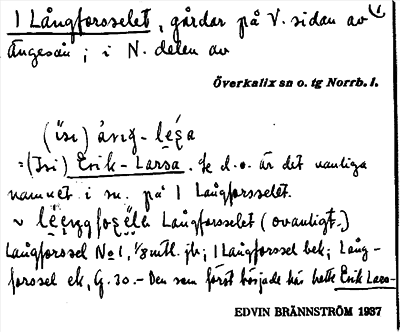 1 Långforsselet, gårdar på V. sidan av 1)
Ängesån; i N. delen av
Överkalix sn o. tg Norrb. l.
(ísı) ärıg-
=(Isi) Erik-Larsa. Se d.o. är det vanliga
namnet i sn. på 1 Långforsselet.
~ Långforsselet (ovanligt.)
Långforssel No 1, 1/8 mtl. jb; 1 Långforssel bek; Lång-
forssel ek, G. 30.- Den som först började här hette Erik Lars-
EDVIN BRÄNNSTRÖM 1937